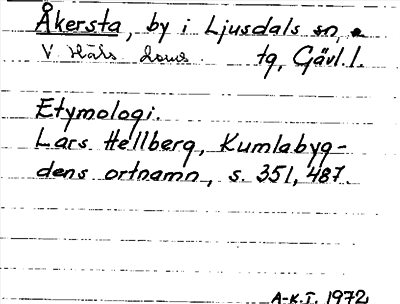 Åkersta, by i Ljusdals sn,
V. Häls doms. tg, Gävl. l.
Etymologi.
Lars Hellberg, Kumlabyg-
dens ortnamn, s. 351, 487.
A-K.I. 1972